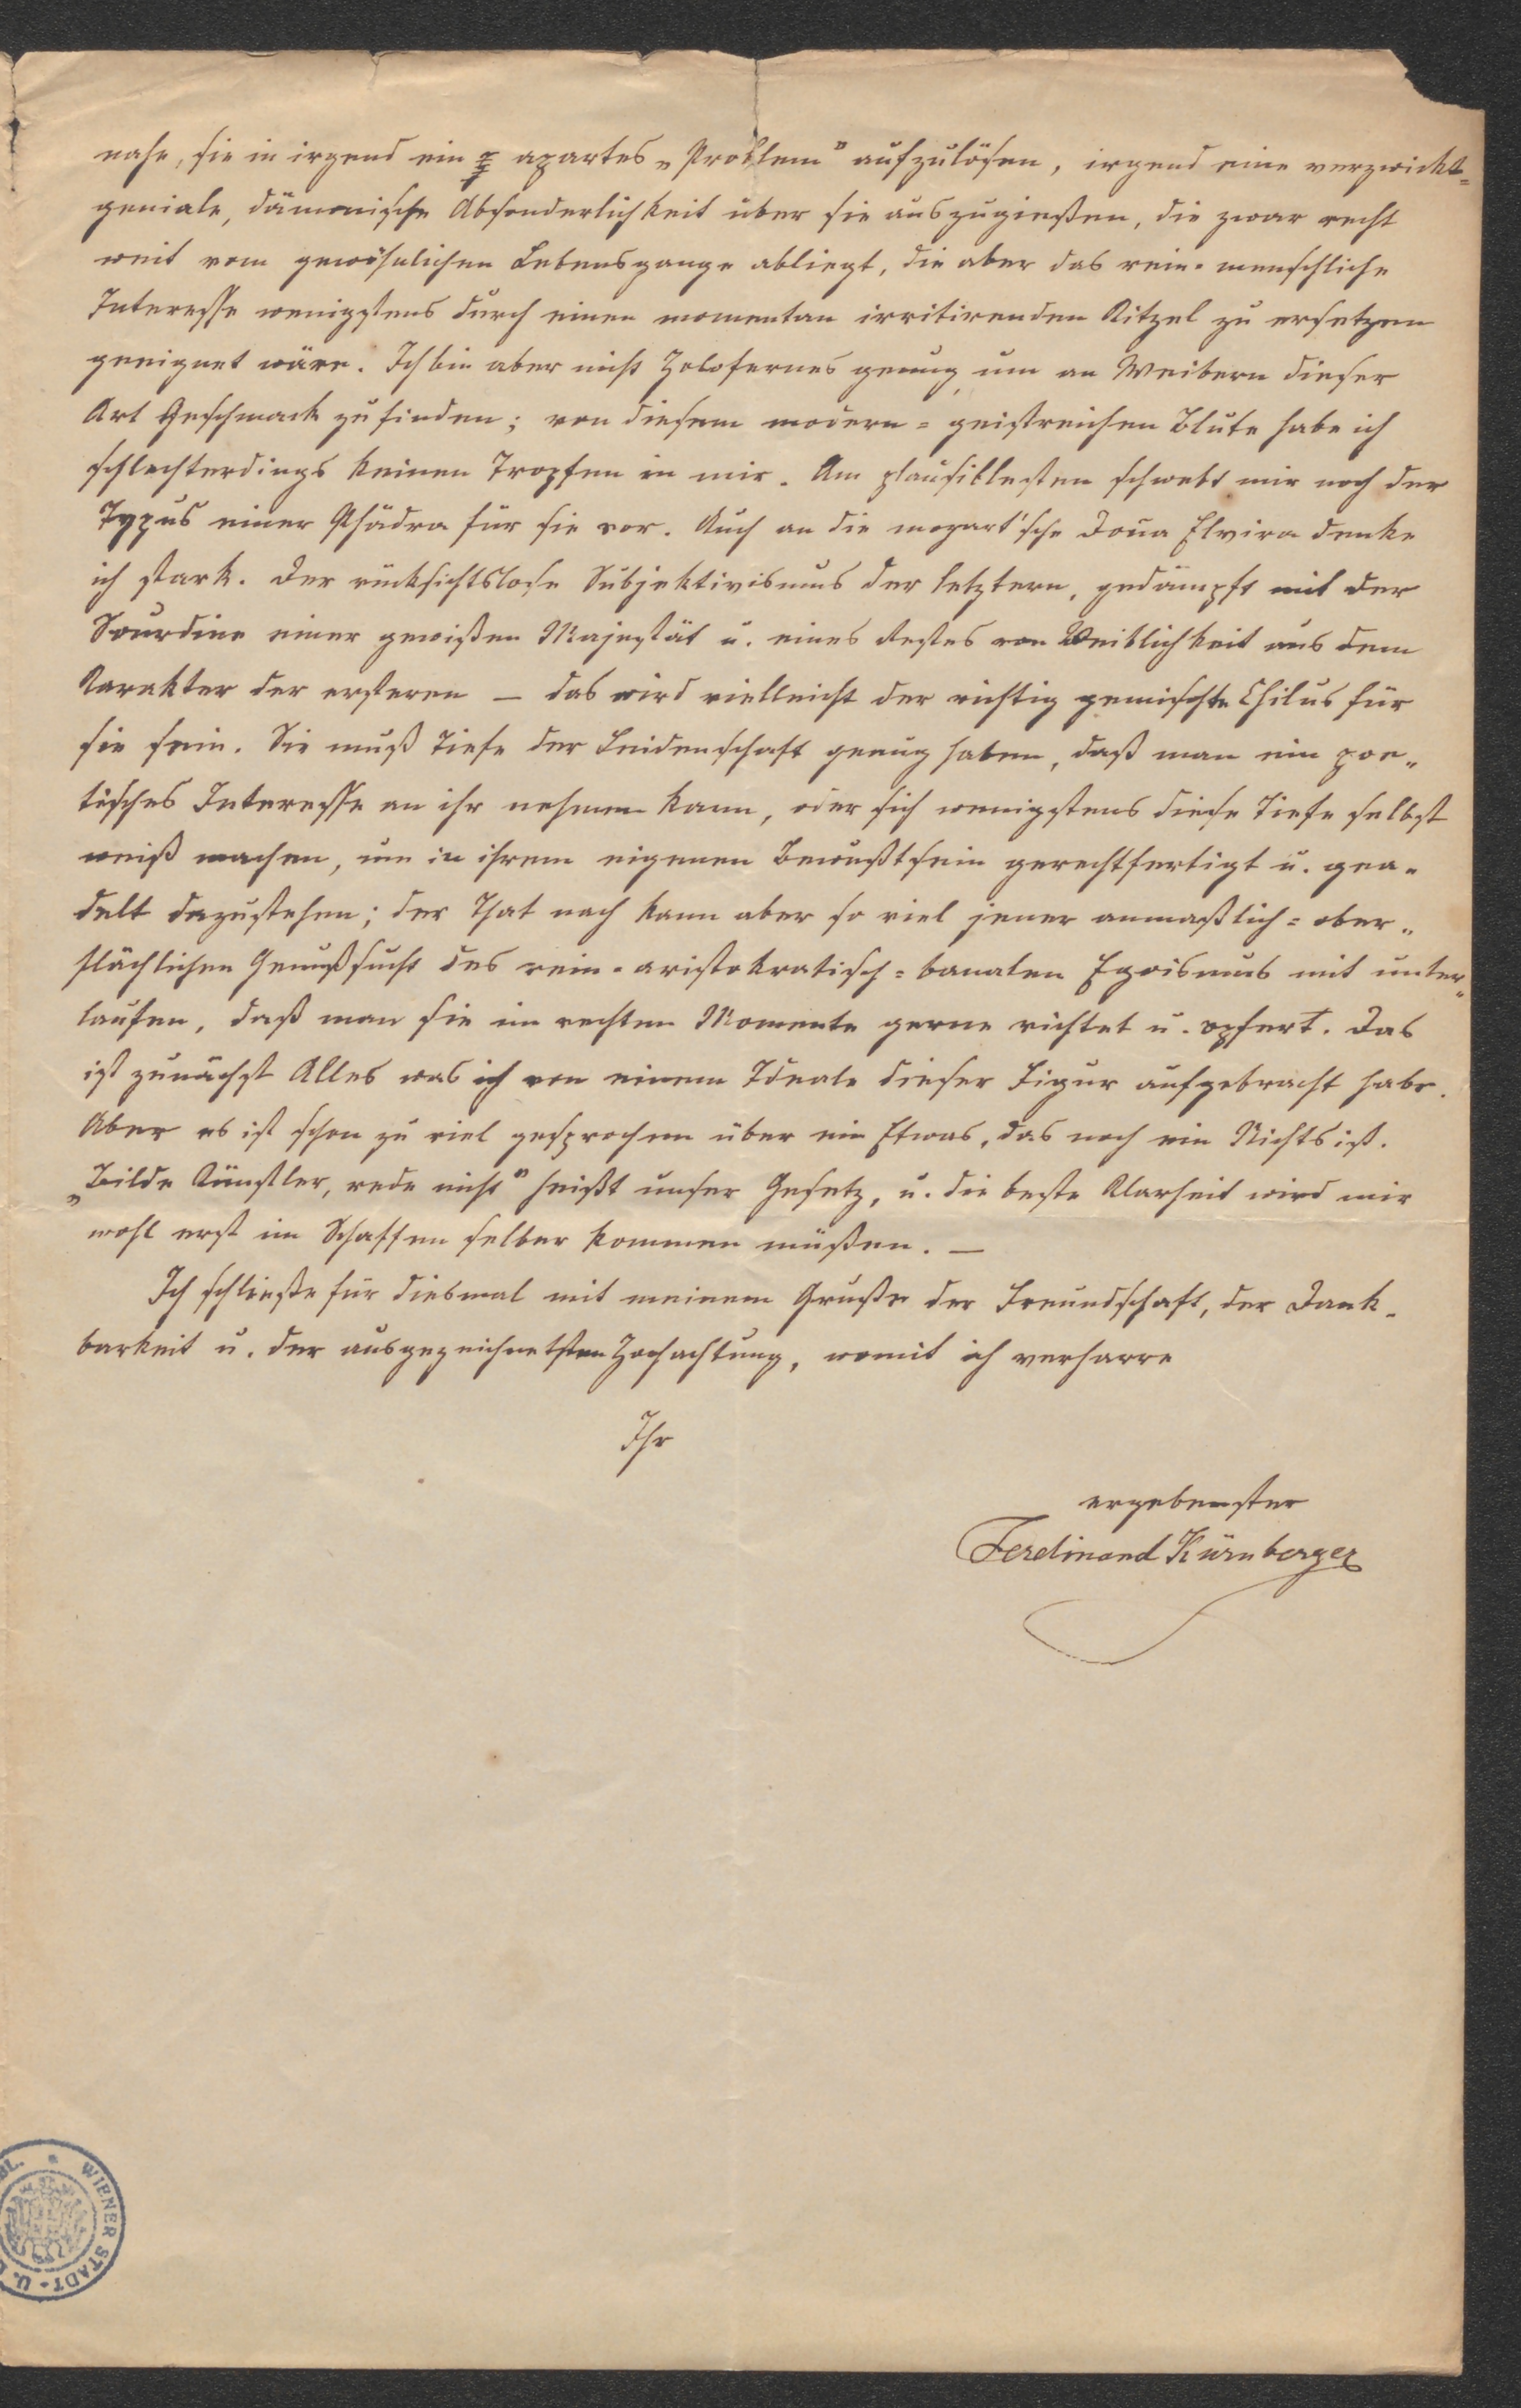 nahe, sie in irgend ein apartes „Problem" aufzulösen, irgend eine verzwickt=
geniale, dämonische Absonderlichkeit über sie auszugießen, die zwar recht
weit vom gewöhnlichen Lebensgange abliegt, die aber das rein-menschliche
Interesse wenigstens durch einen momentan irritirenden Kitzel zu ersetzen
geeignet wäre. Ich bin aber nicht Holofernes genug um an Weibern dieser
Art Geschmack zu finden; von diesem modern=geistreichen Blute habe ich
schlechterdings keinen Tropfen in mir. Am plausiblesten schwebt mir noch der
Typus einer Phädra für sie vor. Auch an die mozart'sche Dona Elvira denke
ich stark. Der rücksichtslose Subjektivismus der letztern, gedämpft mit der
Sourdine einer gewißen Majestät u. eines Restes von Weiblichkeit aus dem
Karakter der ersteren — das wird vielleicht der richtig gemischte Chilus für
sie sein. Sie muß Tiefe der Leidenschaft genug haben, daß man ein poe„
tisches Interesse an ihr nehmen kann, oder sich wenigstens diese Tiefe selbst
weiß machen, um in ihrem eigenen Bewußtsein gerechtfertigt u. gea-
delt dazustehen; der That nach kann aber so viel jener anmaßlich=ober„
flächlichen Genußsucht des rein-aristokratisch=banalen Egoismus mit unter„
laufen, daß man sie im rechten Momente gerne richtet u. opfert. Das
ist zunächst Alles was ich von einem Ideale dieser Figur aufgebracht habe.
Aber es ist schon zu viel gesprochen über ein Etwas, das noch ein Nichts ist.
„Bilde Künstler, rede nicht" heißt unser Gesetz, u. die beste Klarheit wird mir
wohl erst im Schaffen selber kommen müßen. —
Ich schließe für diesmal mit meinem Gruße der Freundschaft, der Dank-
barkeit u. der ausgezeichnetsten Hochachtung, womit ich verharre
Ihr
ergebenster
Ferdinand Kürnberger
WIENER STADT- U.